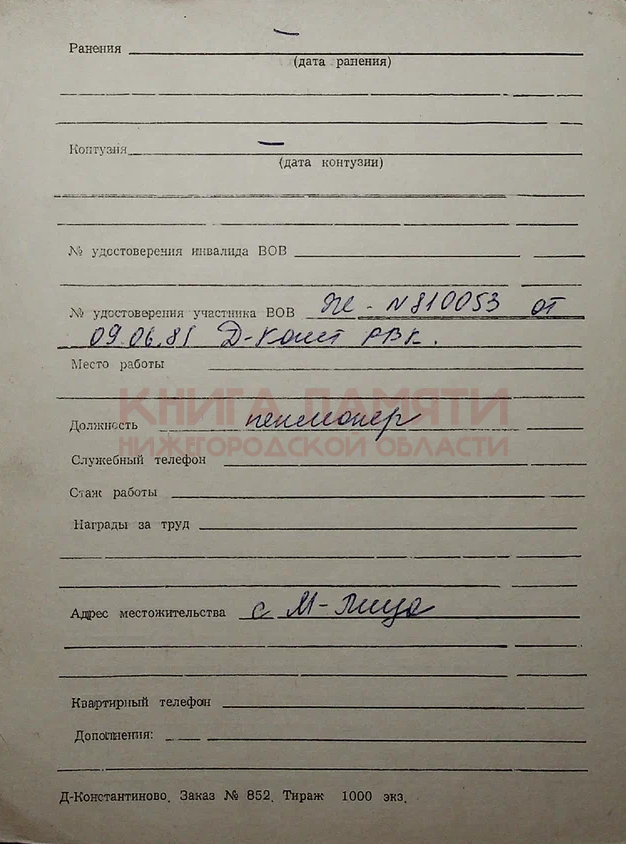 Ранения —
(дата ранения)
Контузия —
(дата контузии)
№ удостоверения инвалида ВОВ
№ удостоверения участника ВОВ - N 810053 от
09.06.81 Д-Конст РВК.
Место работы
КНИГА ПАМЯТИ
Должность пенсионер
НИЖЕГОРОДСКОЙ ОБЛАСТИ
Служебный телефон
Стаж работы
Награды за труд
Адрес местожительства с М-Пица
Квартирный телефон
Дополнения:
Д-Константиново. Заказ № 852. Тираж 1000 экз.